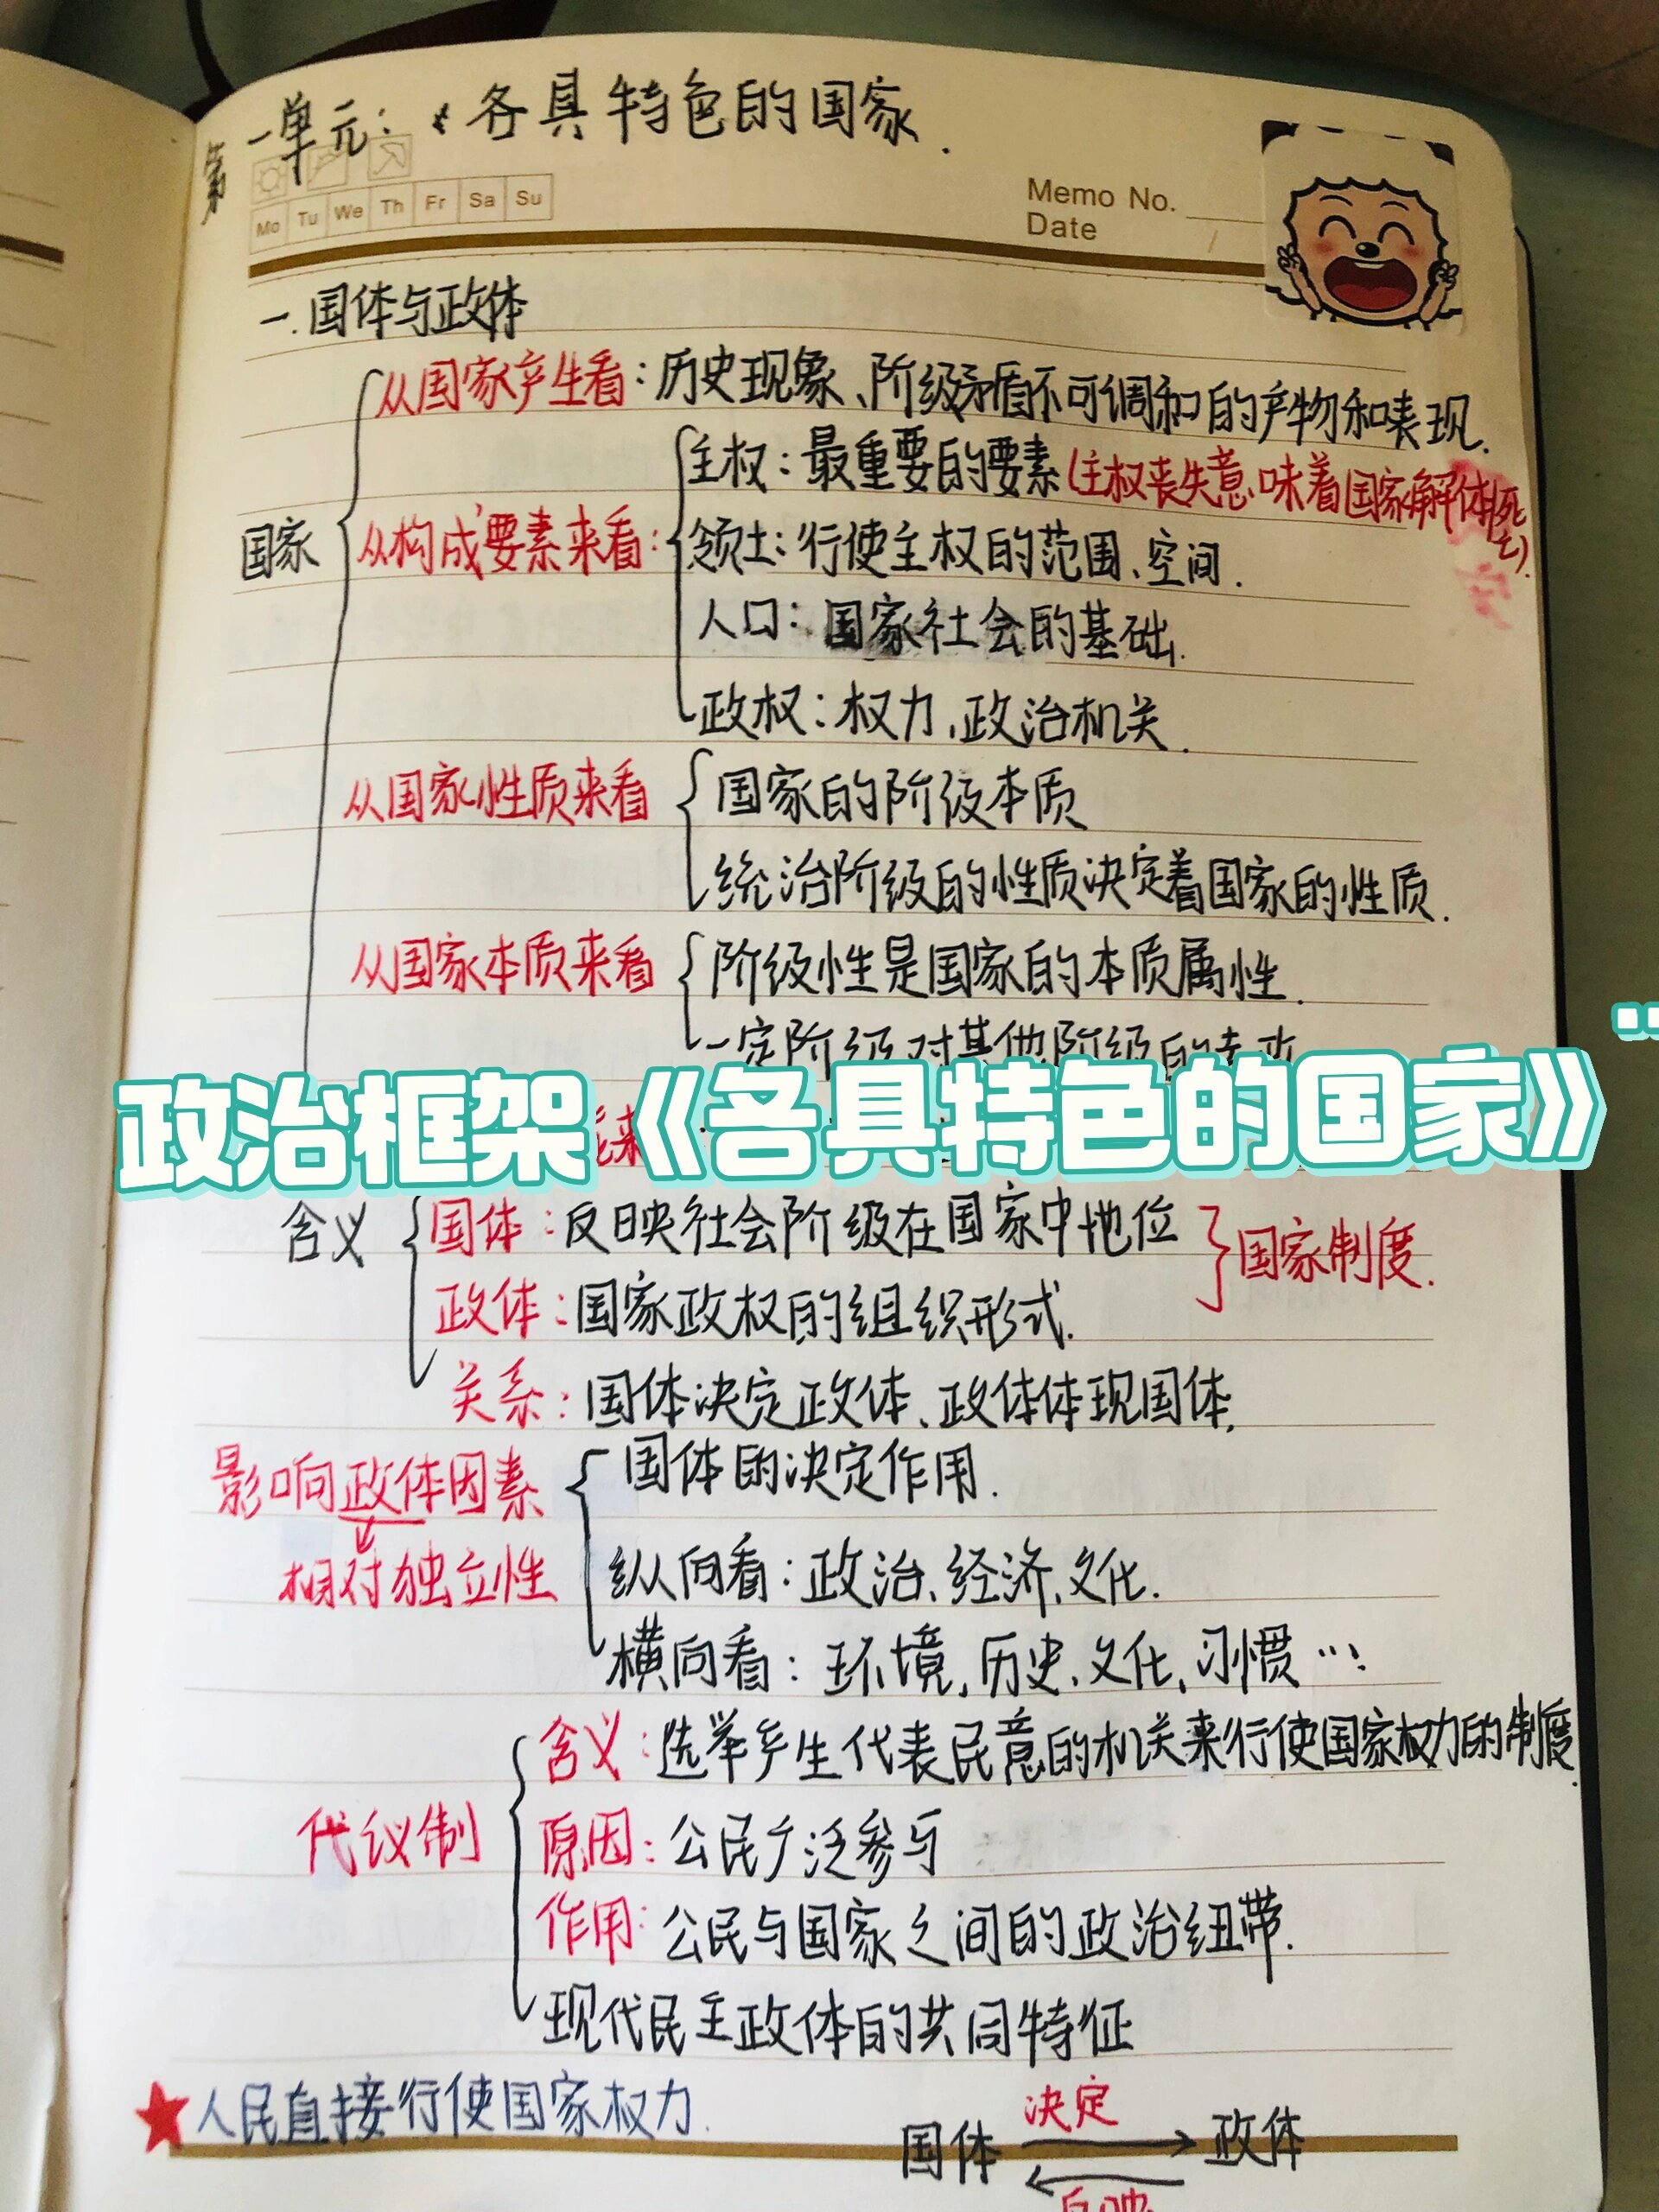 第一单元：《各具特色的国家.
Mo Tu We Th Fr Sa Su
Memo No.
Date /
一.国体与政体
国家
从国家产生看：历史现象、阶级矛盾不可调和的产物和表现.
从构成要素来看：
主权：最重要的要素(主权丧失意味着国家解体(死亡).
领土：行使主权的范围、空间.
人口：国家社会的基础.
政权：权力、政治机关.
从国家性质来看
国家的阶级本质
统治阶级的性质决定着国家的性质.
从国家本质来看
阶级性是国家的本质属性.
一定阶级对其他阶级的专政
政治框架《各具特色的国家》
来
含义
国体：反映社会阶级在国家中地位
政体：国家政权的组织形式.
国家制度.
关系：国体决定政体、政体体现国体.
影响政体因素
相对独立性
国体的决定作用.
纵向看：政治、经济、文化.
横向看：环境，历史、文化，习惯…
代议制
含义：选举产生代表民意的机关来行使国家权力的制度.
原因：公民广泛参与
作用：公民与国家之间的政治纽带.
现代民主政体的共同特征
★人民直接行使国家权力.
国体 决定 政体
反映